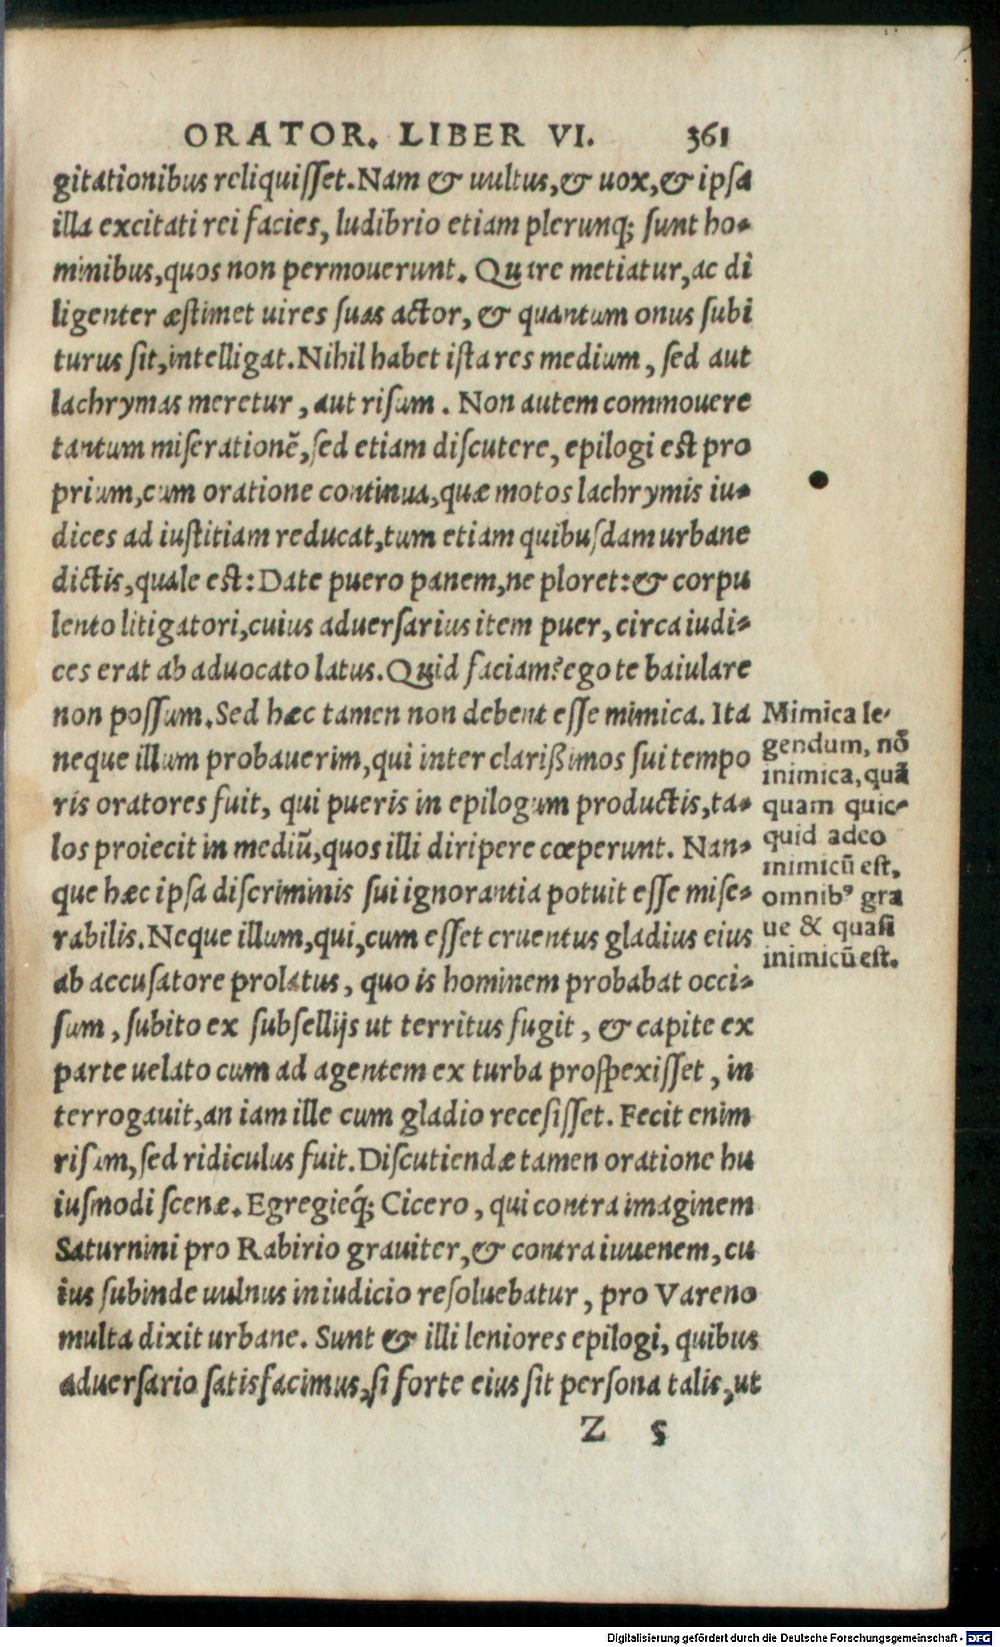 ORATOR. LIBER VI. 361
gitationibus reliquisset. Nam & uultus, & uox, & ipsa
illa excitati rei facies, ludibrio etiam plerunq; sunt ho-
minibus, quos non permouerunt. Quare metiatur, ac di
ligenter æstimet uires suas actor, & quantum onus subi
turus sit, intelligat. Nihil habet ista res medium, sed aut
lachrymas meretur, aut risum. Non autem commouere
tantum miserationẽ, sed etiam discutere, epilogi est pro
prium, cum oratione continua, quæ motos lachrymis iu-
dices ad iustitiam reducat, tum etiam quibusdam urbane
dictis, quale est: Date puero panem, ne ploret: & corpu
lento litigatori, cuius aduersarius item puer, circa iudi-
ces erat ab aduocato latus. Quid faciam? ego te baiulare
non possum. Sed hæc tamen non debent esse mimica. Ita
neque illum probauerim, qui inter clarißimos sui tempo
ris oratores fuit, qui pueris in epilogum productis, ta-
los proiecit in mediũ, quos illi diripere cœperunt. Nan-
que hæc ipsa discriminis sui ignorantia potuit esse mise-
rabilis. Neque illum, qui, cum esset cruentus gladius eius
ab accusatore prolatus, quo is hominem probabat occi-
sum, subito ex subsellijs ut territus fugit, & capite ex
parte uelato cum ad agentem ex turba prospexisset, in
terrogauit, an iam ille cum gladio recesisset. Fecit enim
risum, sed ridiculus fuit. Discutiendæ tamen oratione hu
iusmodi scenæ. Egregieq́; Cicero, qui contra imaginem
Saturnini pro Rabirio grauiter, & contra iuuenem, cu
ius subinde uulnus in iudicio resoluebatur, pro Vareno
multa dixit urbane. Sunt & illi leniores epilogi, quibus
aduersario satisfacimus, si forte eius sit persona talis, ut
Z 5
Mimica le-
gendum, nõ
inimica, quã
quam quic-
quid adeo
mimicũ est,
omnibꝰ gra
ue & quasi
inimicũ est.
Digitalisierung gefördert durch die Deutsche Forschungsgemeinschaft - DFG